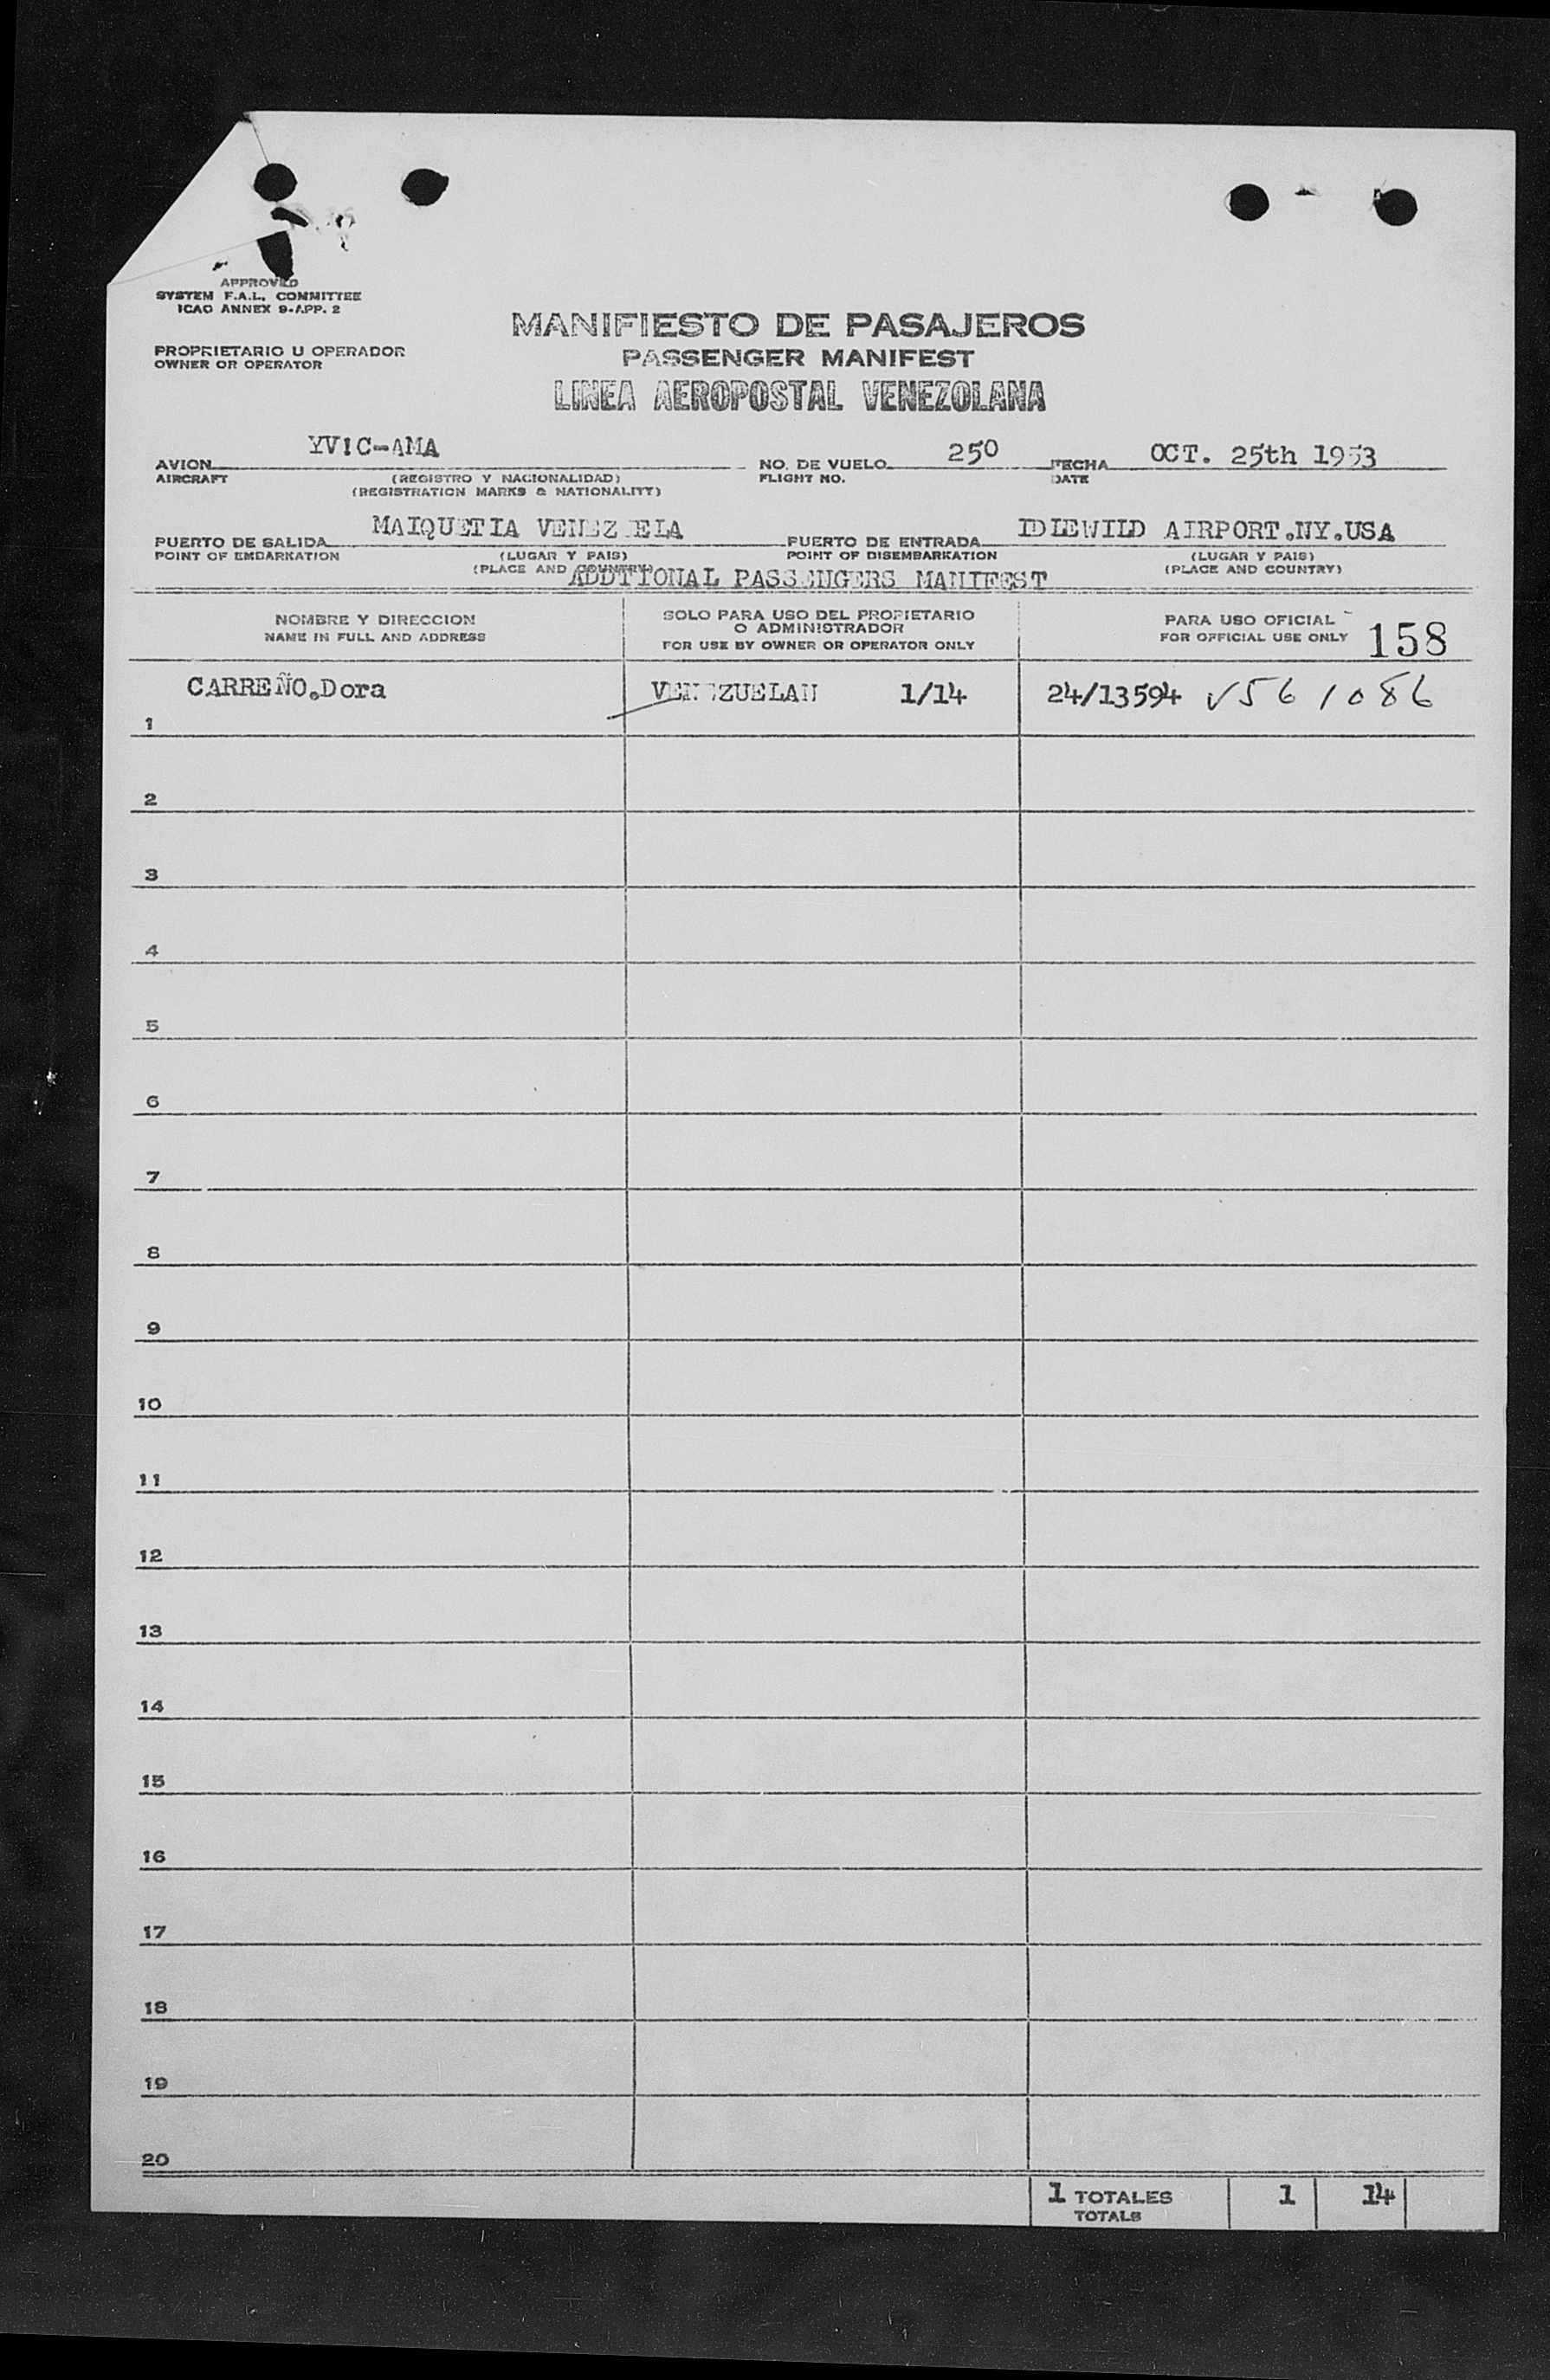 APPROVED
SYSTEM F.A.L. COMMITTEE
ICAO ANNEX 9-APP. 2
MANIFIESTO DE PASAJEROS
PROPRIETARIO U OPERADOR
OWNER OR OPERATOR
PASSENGER MANIFEST
LINEA AEROPOSTAL VENEZOLANA
AVION YV!C-AMA NO. DE VUELO 250 FECHA OCT. 25th 1953
AIRCRAFT (REGISTRO Y NACIONALIDAD) FLIGHT NO. DATE
(REGISTRATION MARKS & NATIONALITY)
PUERTO DE SALIDA MAIQUETIA VENEZ ELA PUERTO DE ENTRADA IDLEWILD AIRPORT.NY.USA
POINT OF EMBARKATION (LUGAR Y PAIS) POINT OF DISEMBARKATION (LUGAR Y PAIS)
(PLACE AND COUNTRY) (PLACE AND COUNTRY)
ADDTIONAL PASSENGERS MANIFEST
NOMBRE Y DIRECCION
NAME IN FULL AND ADDRESS
SOLO PARA USO DEL PROPIETARIO
O ADMINISTRADOR
FOR USE BY OWNER OR OPERATOR ONLY
PARA USO OFICIAL
FOR OFFICIAL USE ONLY 158
CARREÑO.Dora VENEZUELAN 1/14 24/13594 V561086
1
2
3
4
5
6
7
8
9
10
11
12
13
14
15
16
17
18
19
20
1 TOTALES 1 14
TOTALS